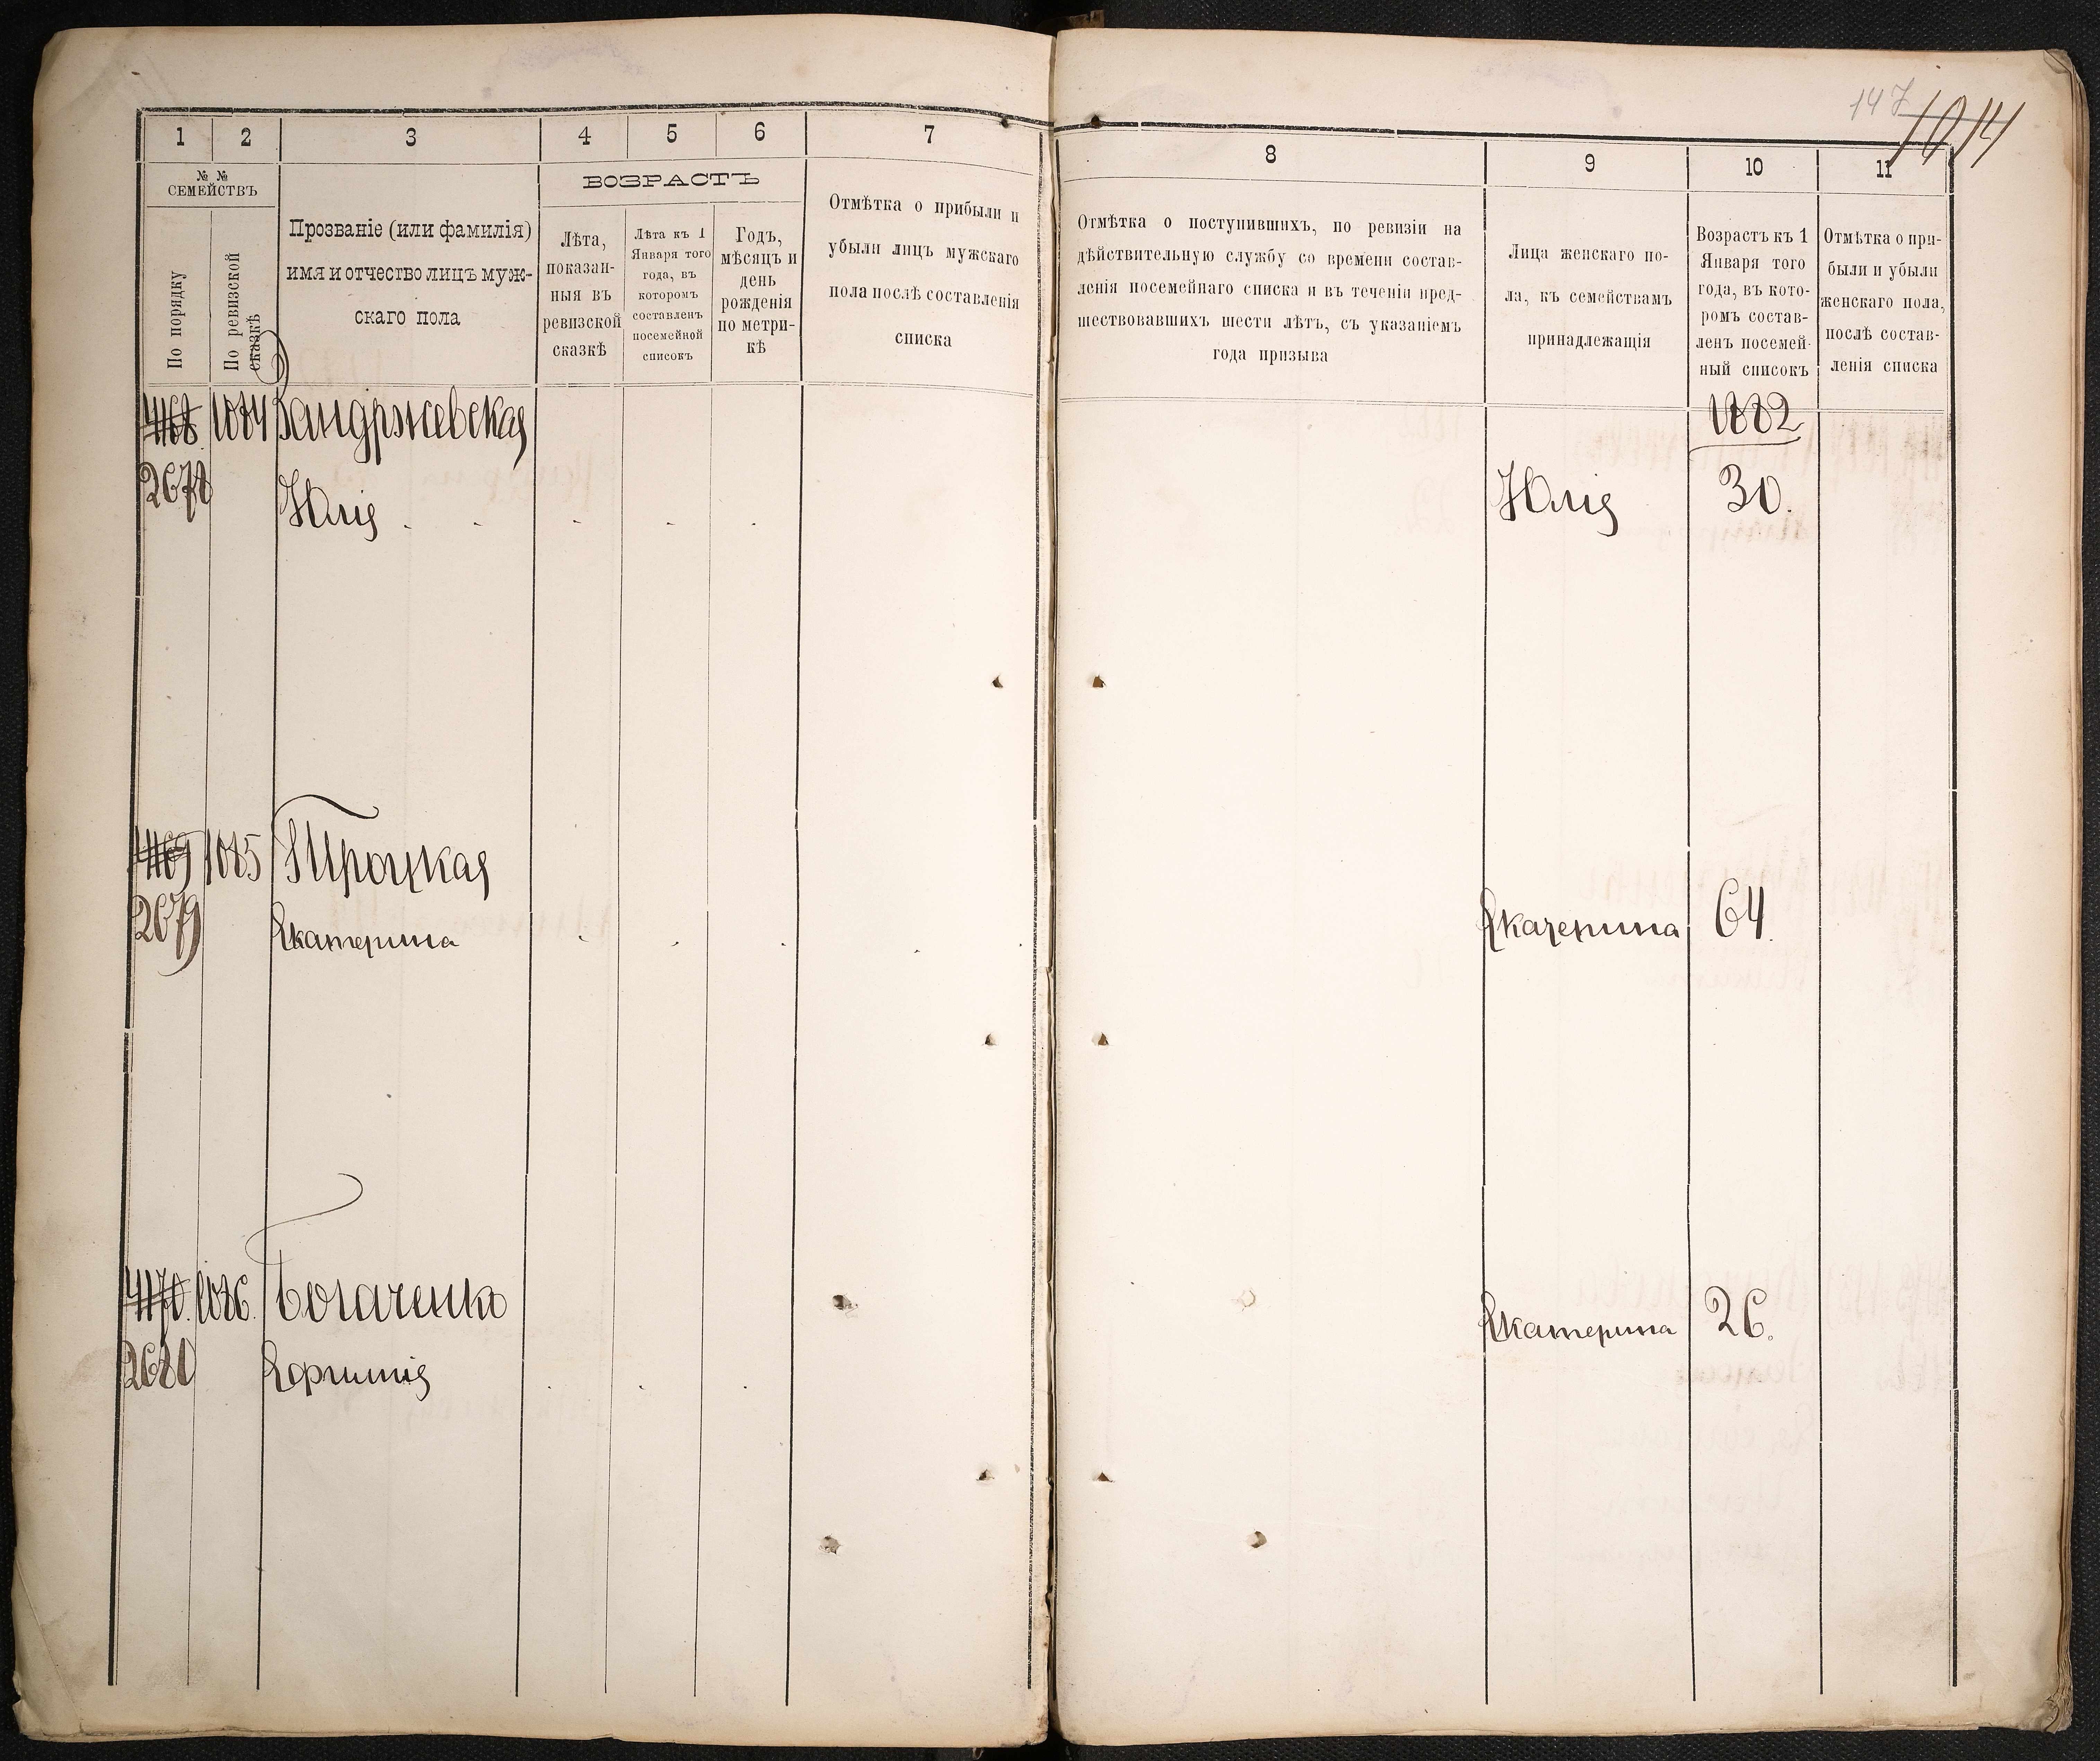 147 1014
1 2 3 4 5 6 7
№ № СЕМЕЙСТВЪ
По порядку
По ревизской сказкѣ
Прозваніе (или фамилія)
имя и отчество лицъ муж-
скаго пола
ВОЗРАСТЪ
Лѣта,
показан-
ныя въ
ревизской
сказкѣ
Лѣта къ 1
Января того
года, въ
которомъ
составленъ
посемейной
списокъ
Годъ,
мѣсяцъ и
день
рожденія
по метри-
кѣ
Отмѣтка о прибыли и
убыли лицъ мужскаго
пола послѣ составленія
списка
8 9 10 11
Отмѣтка о поступившихъ, по ревизіи на
дѣйствительную службу со времени состав-
ленія посемейнаго списка и въ теченіи пред-
шествовавшихъ шести лѣтъ, съ указаніемъ
года призыва
Лица женскаго по-
ла, къ семействамъ
принадлежащія
Возрастъ къ 1
Января того
года, въ кото-
ромъ состав-
ленъ посемей-
ный списокъ
Отмѣтка о при-
были и убыли
женскаго пола,
послѣ состав-
ленія списка
4168 1084 Зандржевская 1882
2678 Юлія Юлія 30.
4169 1085 Троцкая
2679 Екатерина Екатерина 64.
4170. 1086. Богаченко Екатерина 26.
2680